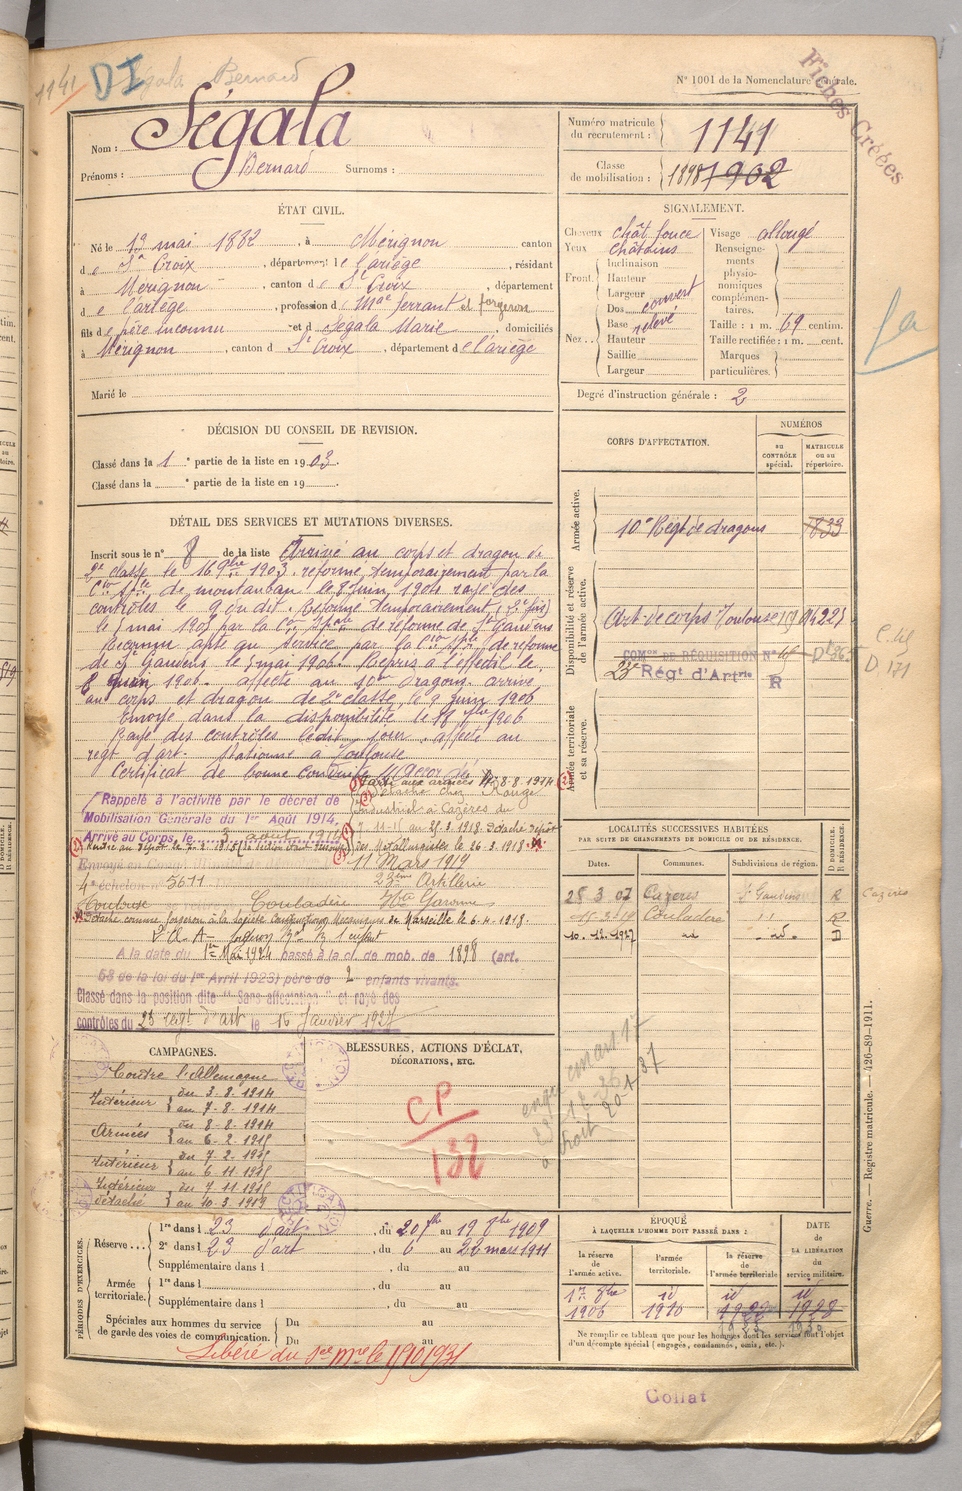 1141 DI Ségala Bernard
N° 1001 de la Nomenclature générale.
Fiches Créées
Nom : Ségala
Prénoms : Bernard Surnoms :
Numéro matricule du recrutement : 1141
Classe de mobilisation : 1898 1902
ÉTAT CIVIL.
Né le 12 mai 1882, à Mérignon canton
de Ste Croix, département de l'ariège, résidant
à Mérignon, canton de Ste Croix, département
de l'ariège, profession de Mal ferrant et forgeron
fils de père inconnu et d Ségala Marie, domiciliés
à Mérignon, canton d Ste Croix, département de l'ariège
Marié le
SIGNALEMENT.
Cheveux chât foncé
Yeux châtains
Front. Inclinaison
Hauteur
Largeur
Nez. Dos couvert
Base relevé
Hauteur
Saillie
Largeur
Visage allongé
Renseignements physionomiques complémentaires.
Taille : 1 m. 69 centim.
Taille rectifiée : 1 m. cent.
Marques particulières.
Degré d'instruction générale : 2
DÉCISION DU CONSEIL DE REVISION.
Classé dans la 1e partie de la liste en 1903.
Classé dans la e partie de la liste en 19
CORPS D'AFFECTATION.
NUMÉROS
au CONTRÔLE spécial.
MATRICULE ou au répertoire.
Armée active.
10e Régt de dragons 833
Disponibilité et réserve de l'armée active.
Art de corps Toulouse
COMon DE RÉQUISITION N°
23e Régt d'Artrie R
D 171
Armée territoriale et sa réserve.
DÉTAIL DES SERVICES ET MUTATIONS DIVERSES.
Inscrit sous le n° 8 de la liste Arrivé au corps et dragon de
2e classe le 16 9bre 1903. réformé temporairement par la
Con Sple de montauban le 8 juin 1904 rayé des
contrôles le 9 du dit. Réformé temporairement (2e fois)
le 5 mai 1905 par la Con Spale de réforme de St Gaudens
Reconnu apte au service par la Con Sple de réforme
de St Gaudens le 5 mai 1906. Repris à l'effectif le
juin 1906. affecté au 10e dragons arrivé
au corps et dragon de 2e classe, le 9 juin 1906
Envoyé dans la disponibilité le 1906
Rayé des contrôles ledit jour. affecté au
régt d'art. stationné à Toulouse
Certificat de bonne conduite Accordé
Parti aux armées le 8-8-1914
Rappelé à l'activité par le décret de
Mobilisation Générale du 1er Août 1914.
Arrivé au Corps, le 3 août 1914
Détaché chez Rouge
Industriel à Cazères du
7-11-15 au 25.3.1918. Détaché Dépôt
des Métallurgistes le 26-3-1918.
11 Mars 1919
23ème Artillerie
4e échelon n° 5611
Toulouse se retire Couladère Hte Garonne
Détaché comme forgeron à la Société Constructions Mécaniques de Marseille le 6-4-1918.
A la date du 1er Mai 1924 passé à la cl. de mob. de 1898 (art.
58 de la loi du 1er Avril 1923) père de 2 enfants vivants.
Classé dans la position dite "Sans affectation" et rayé des
contrôles du 23 régt d'art le 16 Janvier 1927
LOCALITÉS SUCCESSIVES HABITÉES
PAR SUITE DE CHANGEMENTS DE DOMICILE OU DE RÉSIDENCE.
Dates. Communes. Subdivisions de région. D DOMICILE. R RÉSIDENCE.
25 3 07 Cazères St Gaudens R Cazères
15-3-19 Couladère R
10-12-1927 D
CAMPAGNES.
Contre l'Allemagne
Intérieur du 3-8-1914
au 7-8-1914
Armées du 8-8-1914
au 6-2-1915
Intérieur du 7-2-1915
au 6-11-1915
Intérieur détaché du 7-11-1915
au 10-3-1919
BLESSURES, ACTIONS D'ÉCLAT,
DÉCORATIONS, ETC.
CP
132
PÉRIODES D'EXERCICES.
Réserve... 1re dans l 23 d'art, du 20 7bre au 19 1909
2e dans l 23 d'art, du 6 au 22 mars 1911
Supplémentaire dans l, du au
Armée territoriale. 1re dans l, du au
Supplémentaire dans l, du au
Spéciales aux hommes du service de garde des voies de communication. Du au
Du au
Libéré du
ÉPOQUE
À LAQUELLE L'HOMME DOIT PASSER DANS :
la réserve de l'armée active.
l'armée territoriale.
la réserve de l'armée territoriale
DATE de LA LIBÉRATION du service militaire.
1906 1910
Ne remplir ce tableau que pour les hommes dont les services font l'objet
d'un décompte spécial (engagés, condamnés, omis, etc.).
Guerre. — Registre matricule. — 426-89-1911.
Collat